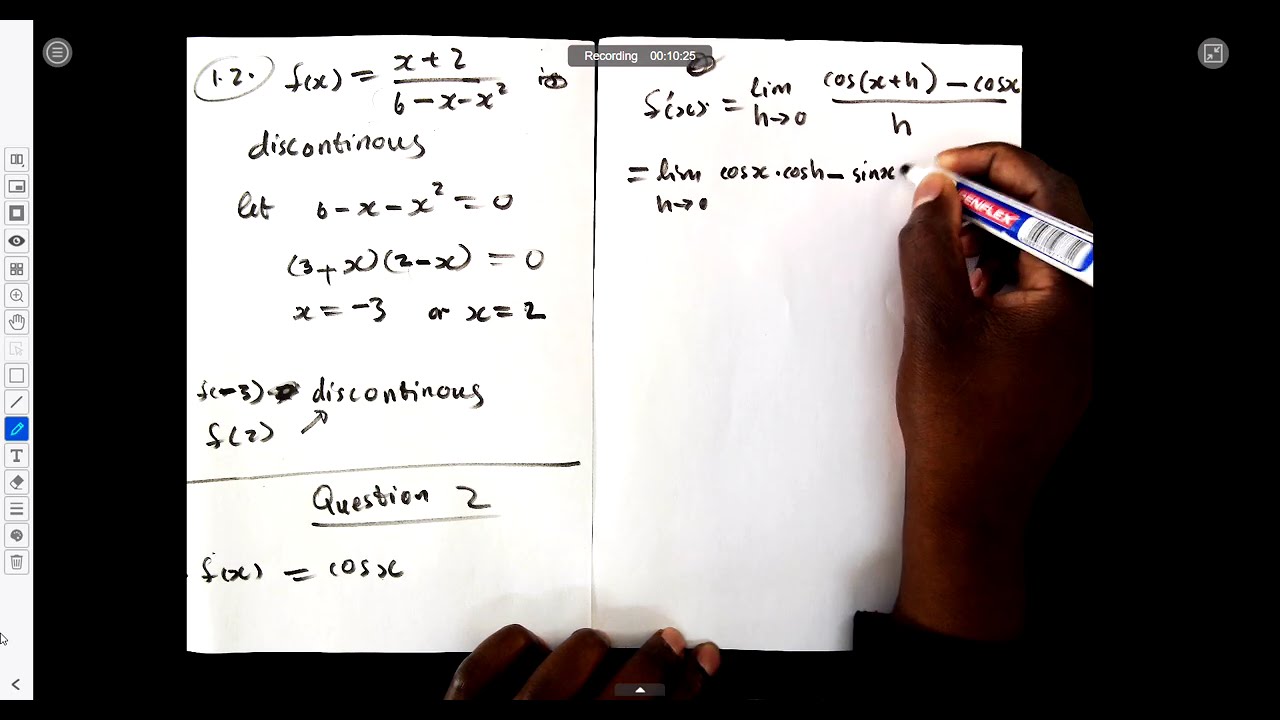 Recording 00:10:25
1.2. f(x) = x + 2 / 6 - x - x² is
discontinous
let 6 - x - x² = 0
(3 + x)(2 - x) = 0
x = -3 or x = 2
f(-3) discontinous
f(2)
Question 2
f(x) = cos x
f'(x) = lim h→0 cos(x+h) - cosx / h
= lim h→0 cosx · cosh - sinx
ENFLEX
T